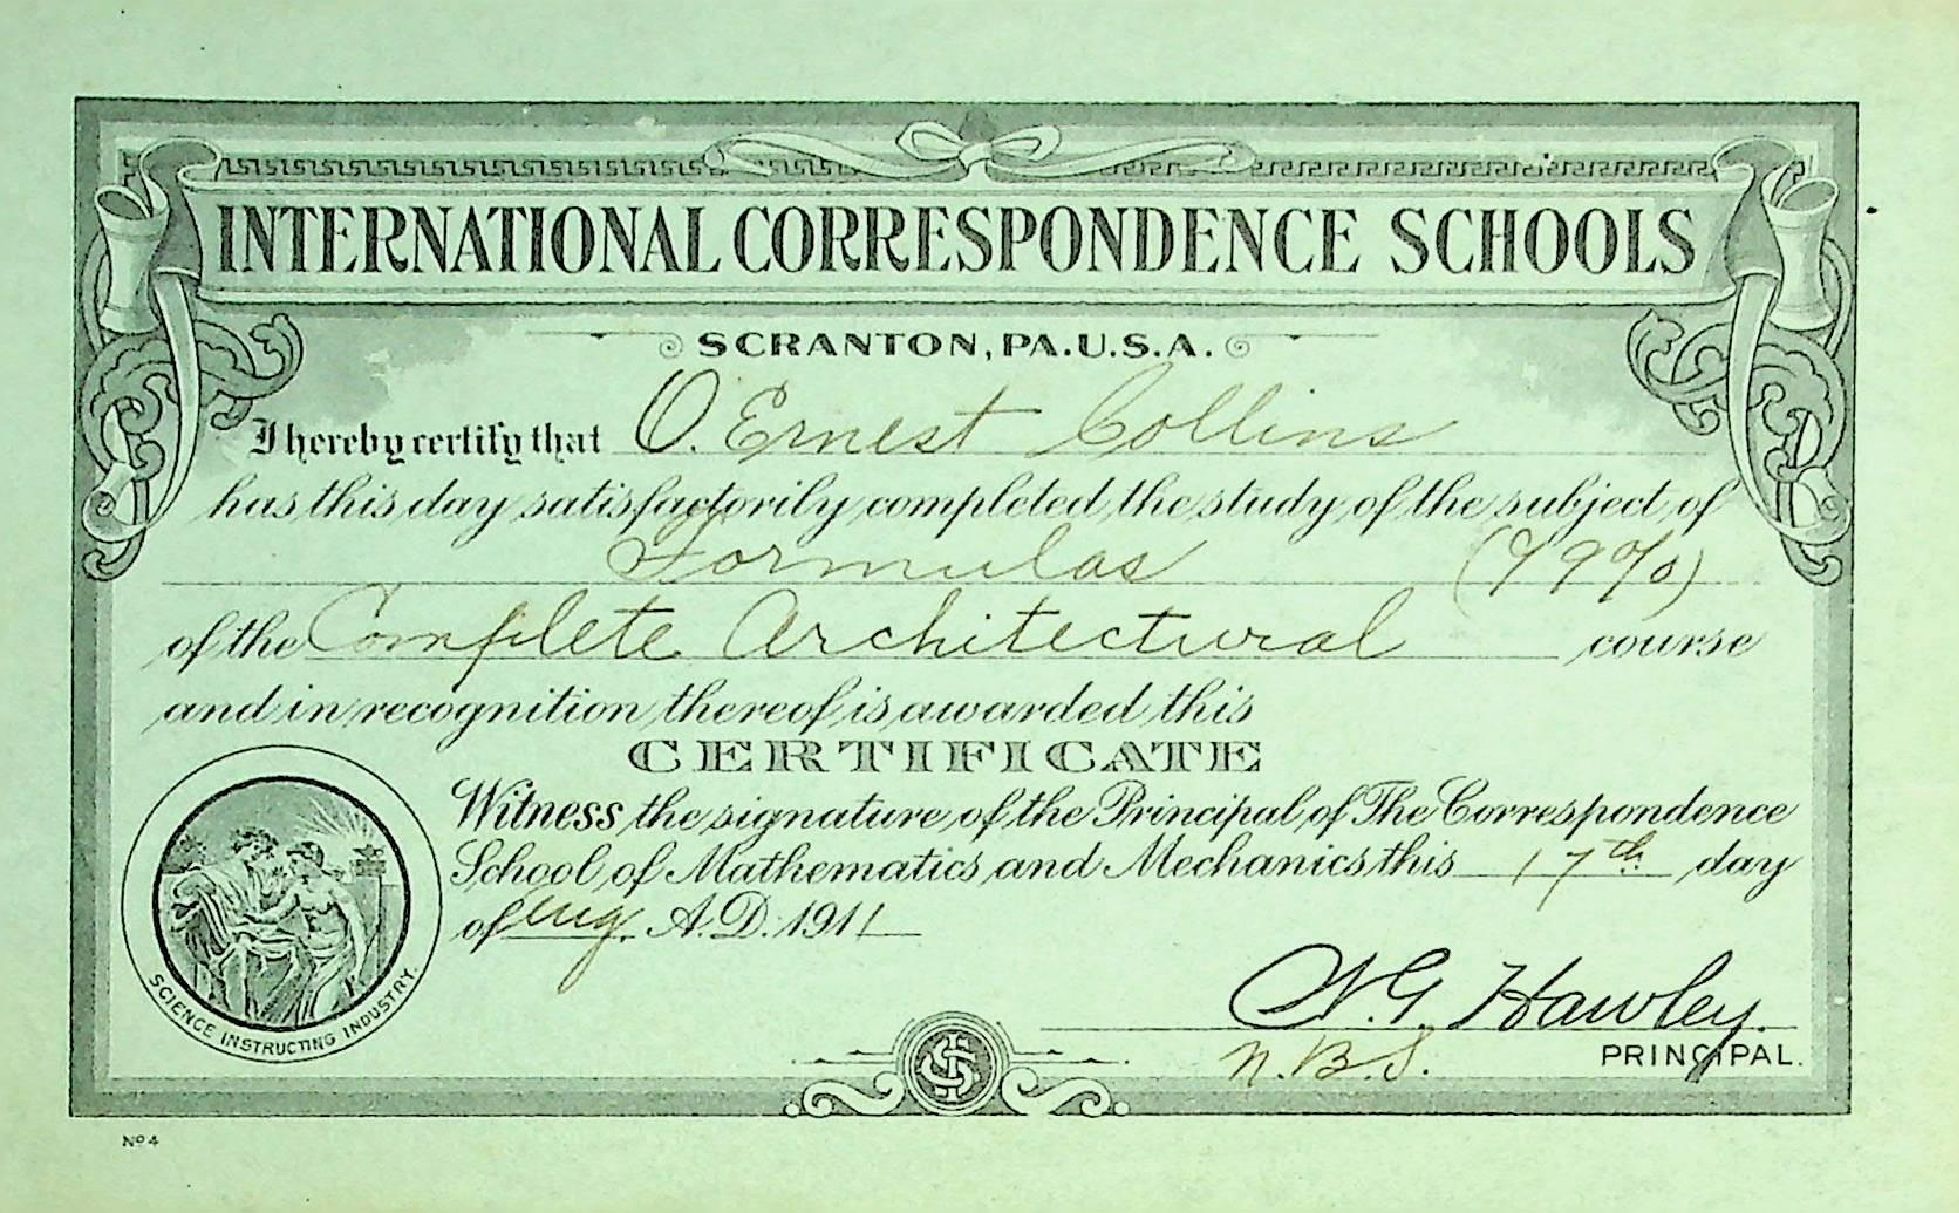 INTERNATIONAL CORRESPONDENCE SCHOOLS
SCRANTON, PA. U.S.A.
I hereby certify that O. Ernest Collins
has this day satisfactorily completed the study of the subject of
Formulas (99%)
of the Complete Architectural course
and in recognition thereof is awarded this
CERTIFICATE
Witness the signature of the Principal of The Correspondence
School of Mathematics and Mechanics this 17th day
of Aug. A.D. 1911
SCIENCE INSTRUCTING INDUSTRY
N.G. Hawley.
N.B.S.
PRINCIPAL.
ICS
No 4